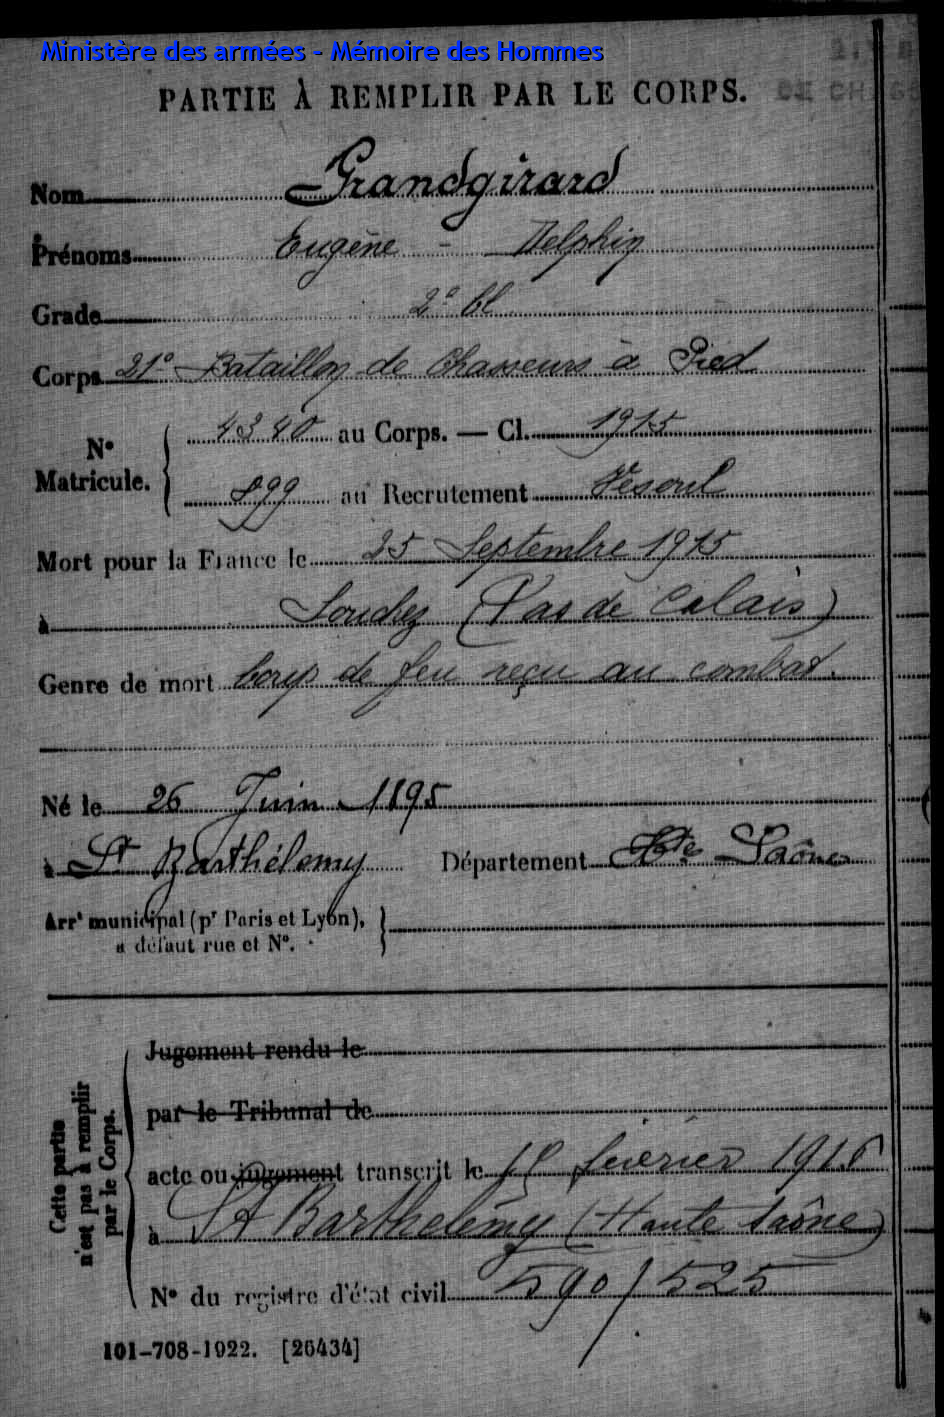 Ministère des armées - Mémoire des Hommes
PARTIE À REMPLIR PAR LE CORPS.
Nom Grandgirard
Prénoms Eugène - Delphin
Grade 2e cl
Corps 21e Bataillon de Chasseurs à Pied
N° Matricule. 4340 au Corps. — Cl. 1915
899 au Recrutement Vesoul
Mort pour la France le 25 Septembre 1915
à Souchez (Pas de Calais)
Genre de mort Coup de feu reçu au combat.
Né le 26 Juin 1895
à St Barthélemy Département Hte Saône
Arrt municipal (pr Paris et Lyon),
à défaut rue et N°.
Cette partie n'est pas à remplir par le Corps.
Jugement rendu le
par le Tribunal de
acte ou jugement transcrit le février 1916
à St Barthelémy (Haute Saône)
N° du registre d'état civil 590/525
101-708-1922. [26434]